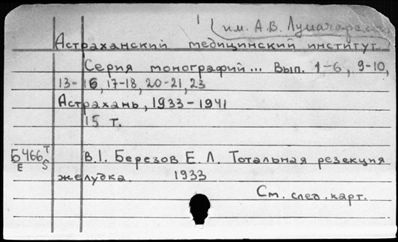 им. А.В. Луначарского
Астраханский медицинский институт
Серия монографий... Вып. 1-6, 9-10,
13-16, 17-18, 20-21, 23
Астрахань, 1933-1941
15 т.
Б466 Т В.1. Березов Е. Л. Тотальная резекция
Е S желудка. 1933
См. след. карт.